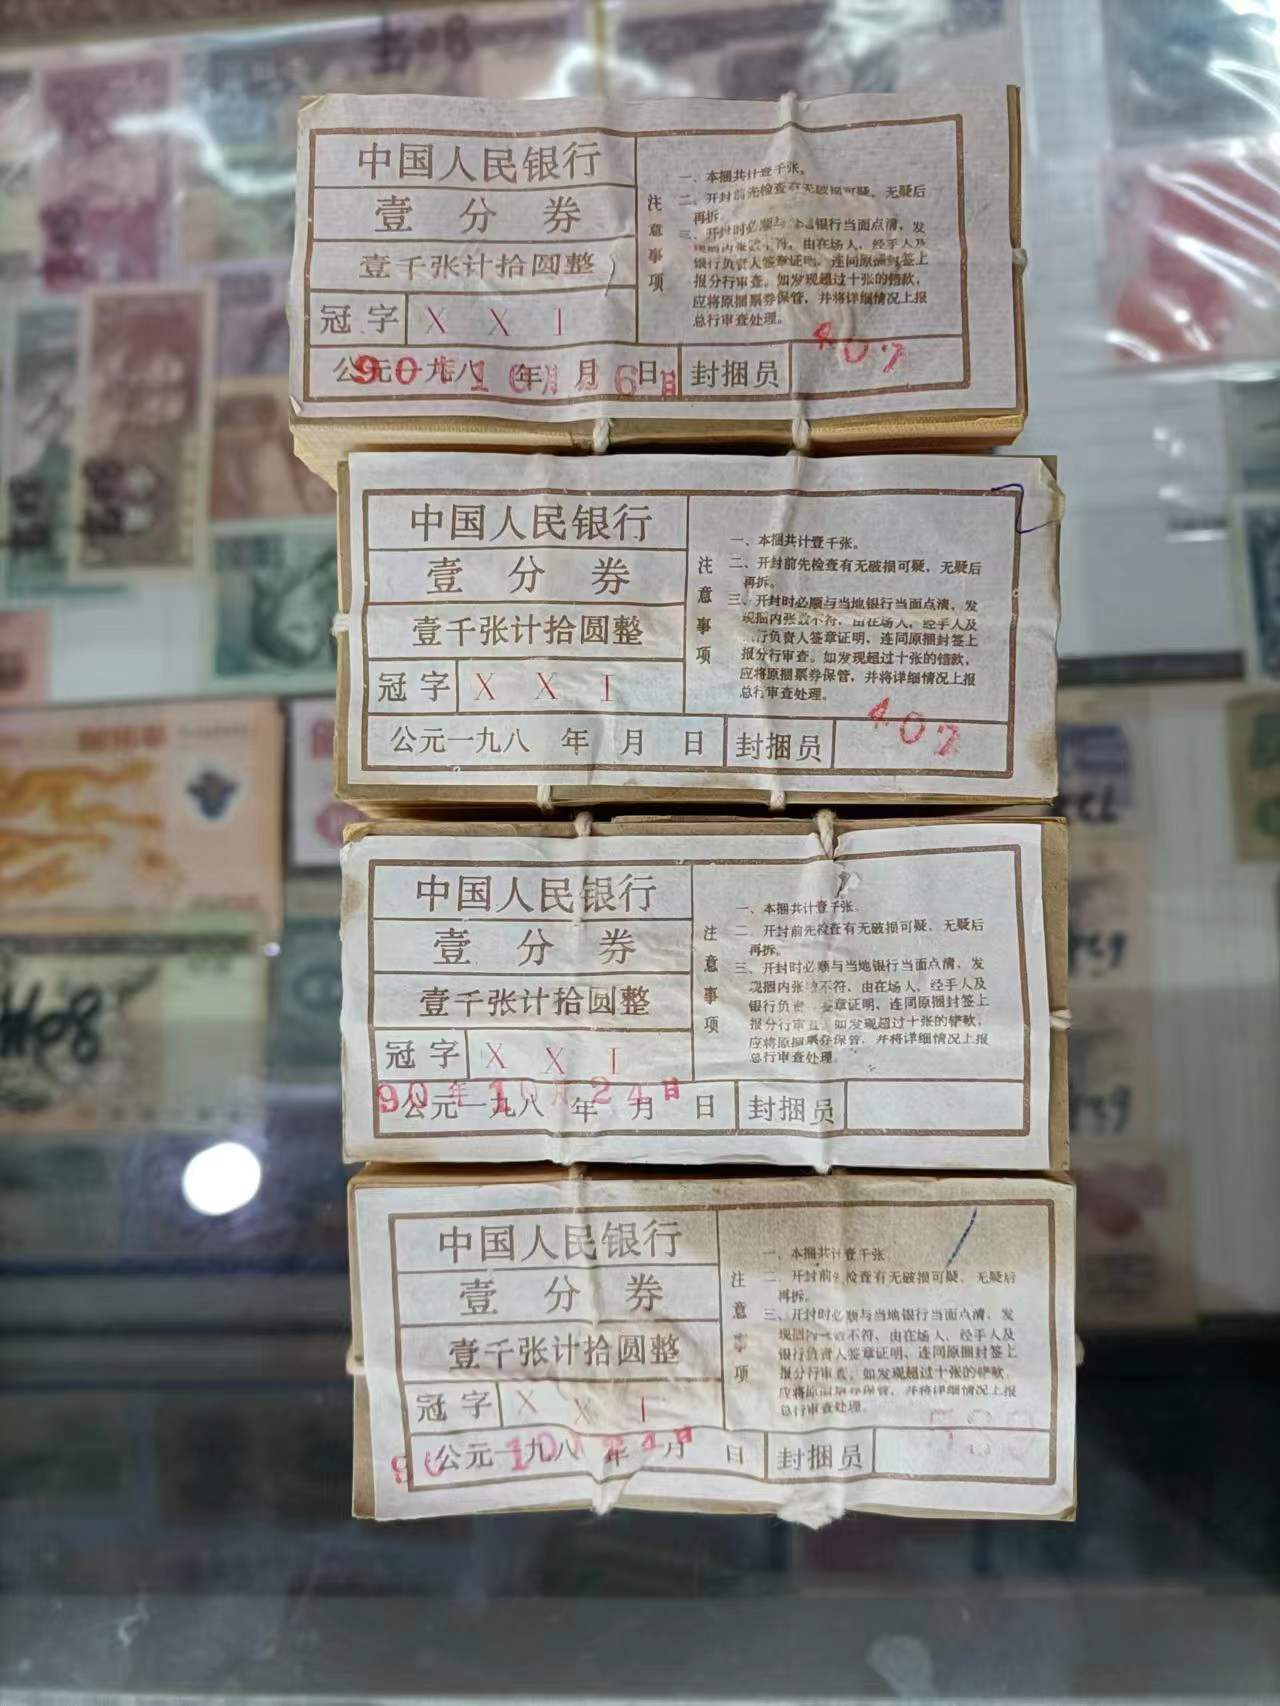 中国人民银行
壹分券
壹千张计拾圆整
冠字 X X I
公元一九八 年 月 日 封捆员 407
90 10 6日
注意事项
一、本捆共计壹千张。
二、开封前先检查有无破损可疑，无疑后
再拆。
三、开封时必顺与 银行当面点清，发
由在场人，经手人及
银行负责人签章证明，连同原捆封签上
报分行审查。如发现超过十张的错款，
应将原捆票券保管，并将详细情况上报
总行审查处理。
中国人民银行
壹分券
壹千张计拾圆整
冠字 X X I
公元一九八 年 月 日 封捆员 407
注意事项
一、本捆共计壹千张。
二、开封前先检查有无破损可疑，无疑后
再拆。
三、开封时必顺与当地银行当面点清，发
现捆内张数不符，由在场人，经手人及
行负责人签章证明，连同原捆封签上
报分行审查。如发现超过十张的错款，
应将原捆票券保管，并将详细情况上报
总行审查处理。
中国人民银行
壹分券
壹千张计拾圆整
冠字 X X I
90年10月24日
公元一九八 年 月 日 封捆员
注意事项
一、本捆共计壹千张。
二、开封前先检查有无破损可疑，无疑后
再拆。
三、开封时必顺与当地银行当面点清，发
现捆内张 不符，由在场人，经手人及
银行负责 签章证明，连同原捆封签上
报分行审查。如发现超过十张的错款，
应将原捆票券保管，并将详细情况上报
总行审查处理。
中国人民银行
壹分券
壹千张计拾圆整
冠字 X X I
90 10 24日
公元一九八 年 月 日 封捆员 580
注意事项
一、本捆共计壹千张
二、开封前先检查有无破损可疑，无疑后
再拆。
三、开封时必顺与当地银行当面点清，发
现捆内 不符，由在场人，经手人及
银行负责人签章证明，连同原捆封签上
报分行审查。如发现超过十张的错款，
应将原捆票券保管，并将详细情况上报
总行审查处理。